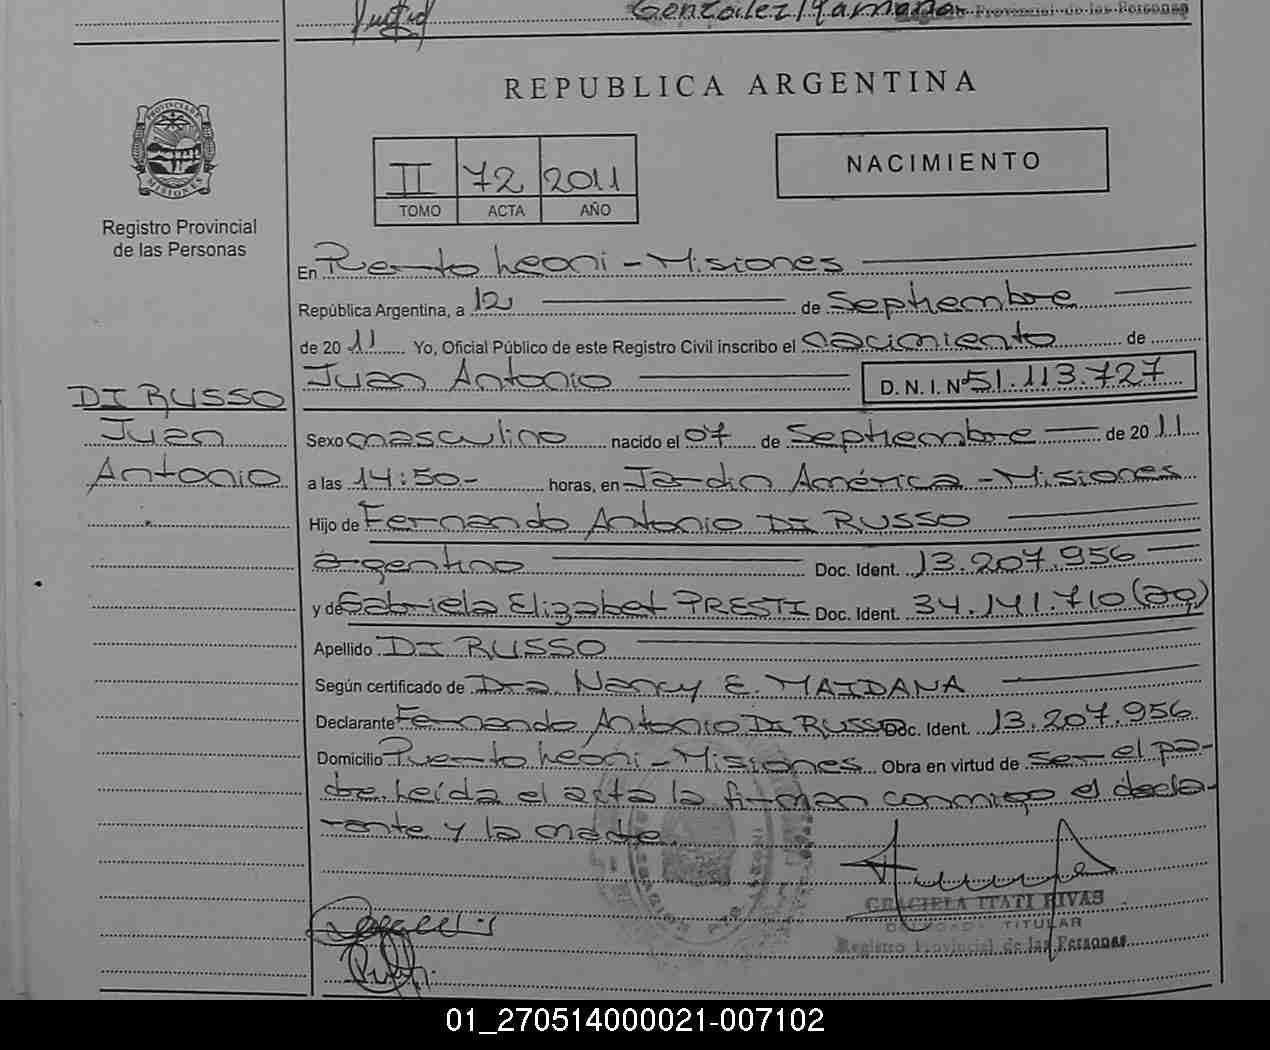 González Ramona Registro Provincial de las Personas
REPUBLICA ARGENTINA
PROVINCIA DE
MISIONES
Registro Provincial
de las Personas
II 72 2011
TOMO ACTA AÑO
NACIMIENTO
En Puerto Leoni - Misiones
República Argentina, a 12 de Septiembre
de 2011 Yo, Oficial Público de este Registro Civil inscribo el nacimiento de
Juan Antonio D.N.I. Nº 51.113.727
DI RUSSO
Juan
Antonio
Sexo masculino nacido el 07 de Septiembre de 2011
a las 14:50- horas, en Jardín América - Misiones
Hijo de Fernando Antonio DI RUSSO
argentino Doc. Ident. 13.207.956
y de Gabriela Elizabet PRESTI Doc. Ident. 34.141.710 (ag)
Apellido DI RUSSO
Según certificado de Dra. Nancy E. MAIDANA
Declarante Fernando Antonio DI RUSSO Doc. Ident. 13.207.956
Domicilio Puerto Leoni - Misiones Obra en virtud de ser el pa-
dre. Leída el acta la firman conmigo el decla-
rante y la madre.
GRACIELA ITATI RIVAS
DELEGADA TITULAR
Registro Provincial de las Personas
01_270514000021-007102